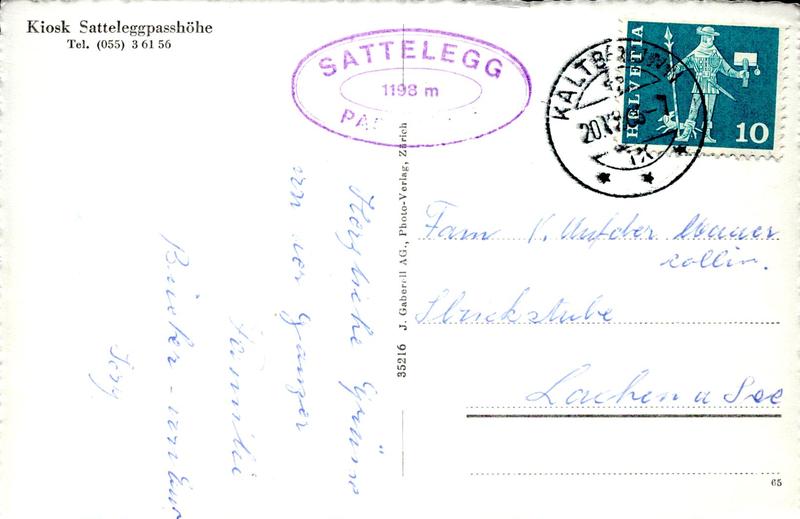 Kiosk Satteleggpasshöhe
Tel. (055) 3 61 56
SATTELEGG
1198 m
PA
KALTBRUNN
20.
HELVETIA
10
35216 J. Gaberell AG., Photo-Verlag, Zürich
Herzliche Grüsse
von der ganzen
Familie
Fam K. Aufder Mauer
Strickstube
Lachen a See
65